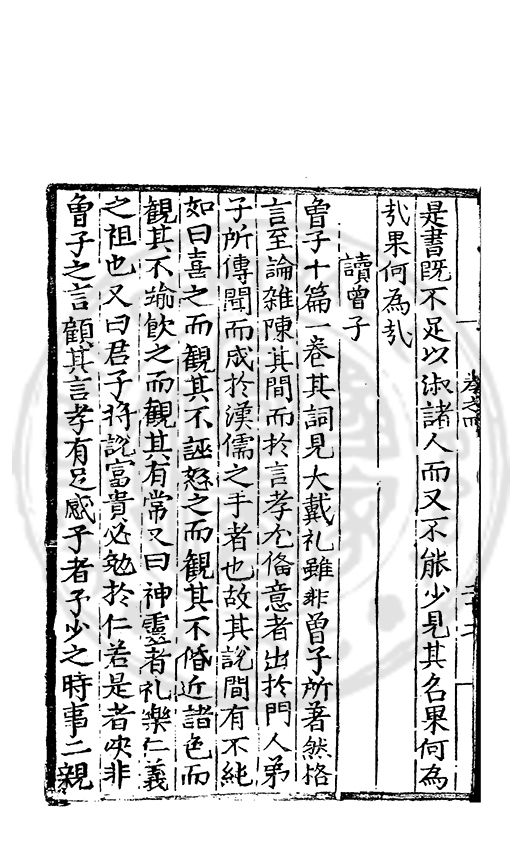 是書既不足以淑諸人而又不能少見其名果何為
㢤果何為㢤
讀曾子
曾子十篇一卷其詞見大戴礼雖非曾子所著然格
言至論雜陳其間而扵言孝尤俻意者出扵門人弟
子所傳聞而成扵漢儒之手者也故其說間有不純
如曰喜之而觀其不誣怒之而觀其不惛近諸色而
觀其不踰飲之而觀其有常又曰神靈者礼樂仁義
之祖也又曰君子将說富貴必勉扵仁若是者决非
曾子之言顧其言孝有足感予者予少之時事二親
卷之四
二十六